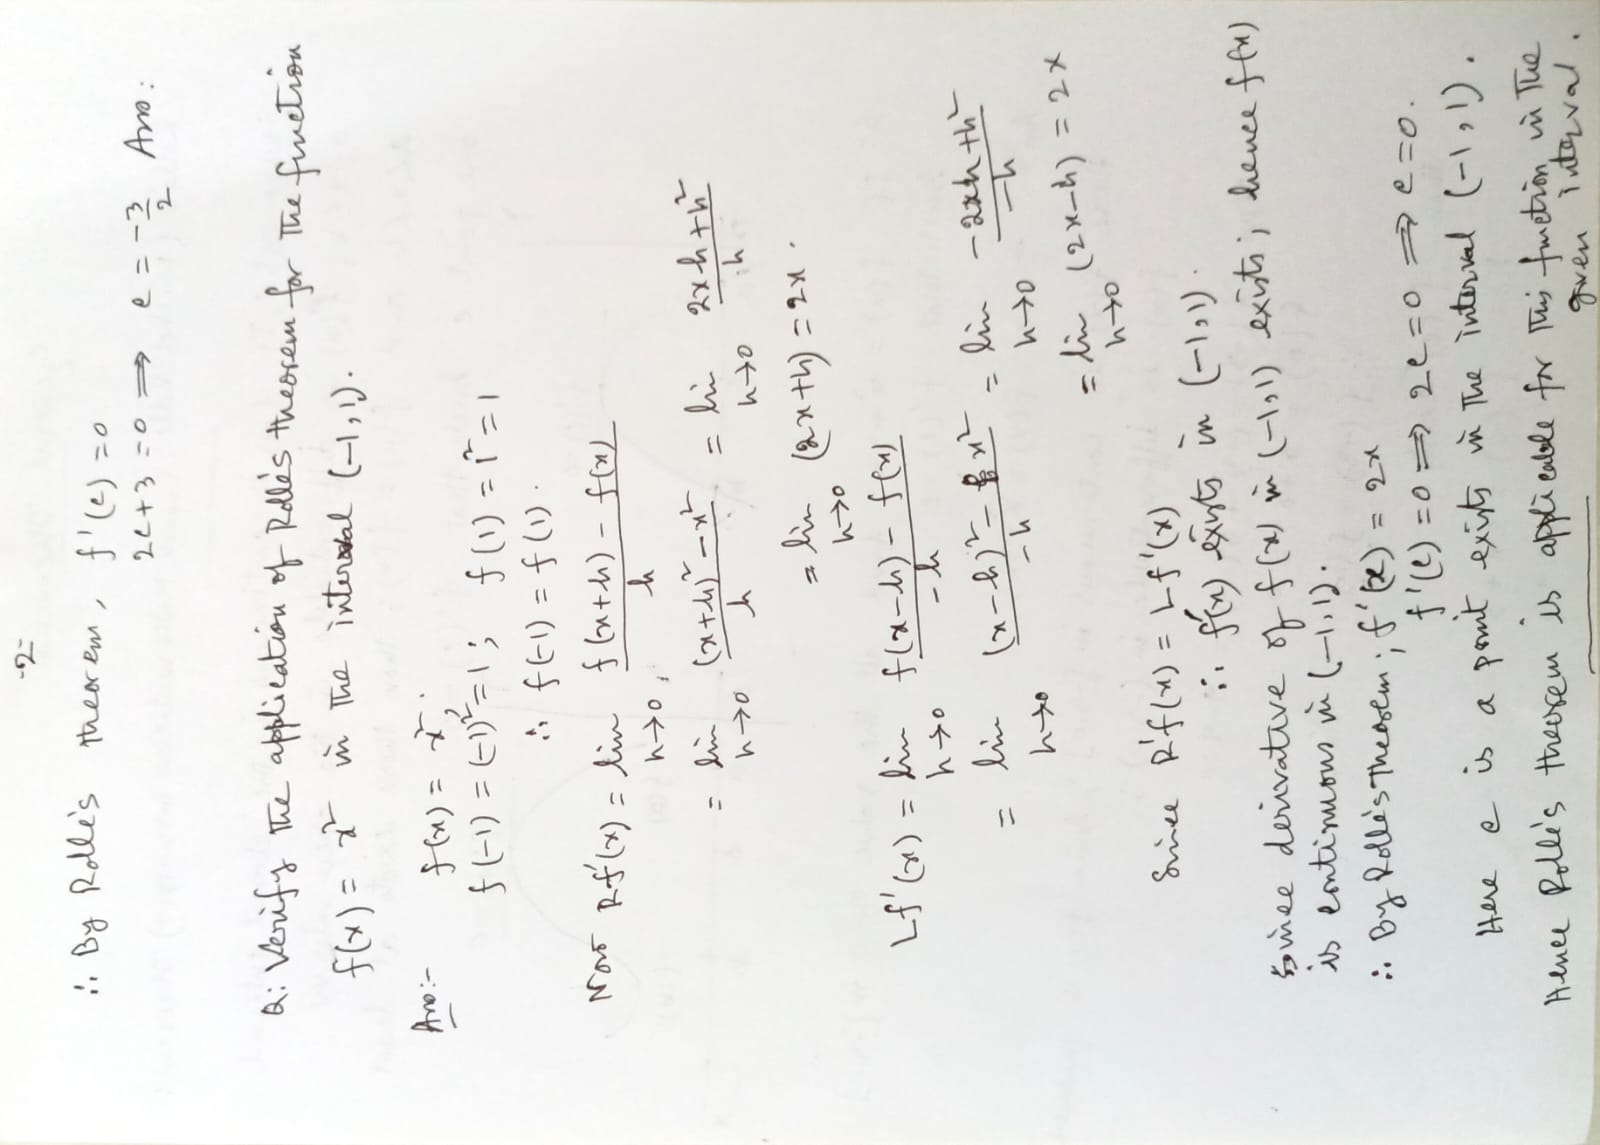 -2-
∴ By Rolle's theorem, f'(c) = 0
2c + 3 = 0 ⟹ c = -3/2 Ans:
Q: Verify the application of Rolle's theorem for the function
f(x) = x² in the interval (-1, 1).
Ans:- f(x) = x²,
f(-1) = (-1)² = 1 ; f(1) = 1² = 1
∴ f(-1) = f(1).
Now Rf'(x) = lim h→0 (f(x+h) - f(x))/h
= lim h→0 ((x+h)² - x²)/h = lim h→0 (2xh + h²)/h
= lim h→0 (2x+h) = 2x.
Lf'(x) = lim h→0 (f(x-h) - f(x))/-h
= lim h→0 ((x-h)² - x²)/-h = lim h→0 (-2xh + h²)/-h
= lim h→0 (2x-h) = 2x
Since R'f(x) = Lf'(x)
∴ f'(x) exists in (-1, 1).
Since derivative of f(x) in (-1, 1) exists ; hence f(x)
is continuous in (-1, 1).
∴ By Rolle's theorem ; f'(x) = 2x
f'(c) = 0 ⟹ 2c = 0 ⟹ c = 0.
Here c is a point exists in the interval (-1, 1).
Hence Rolle's theorem is applicable for this function in the
given interval.